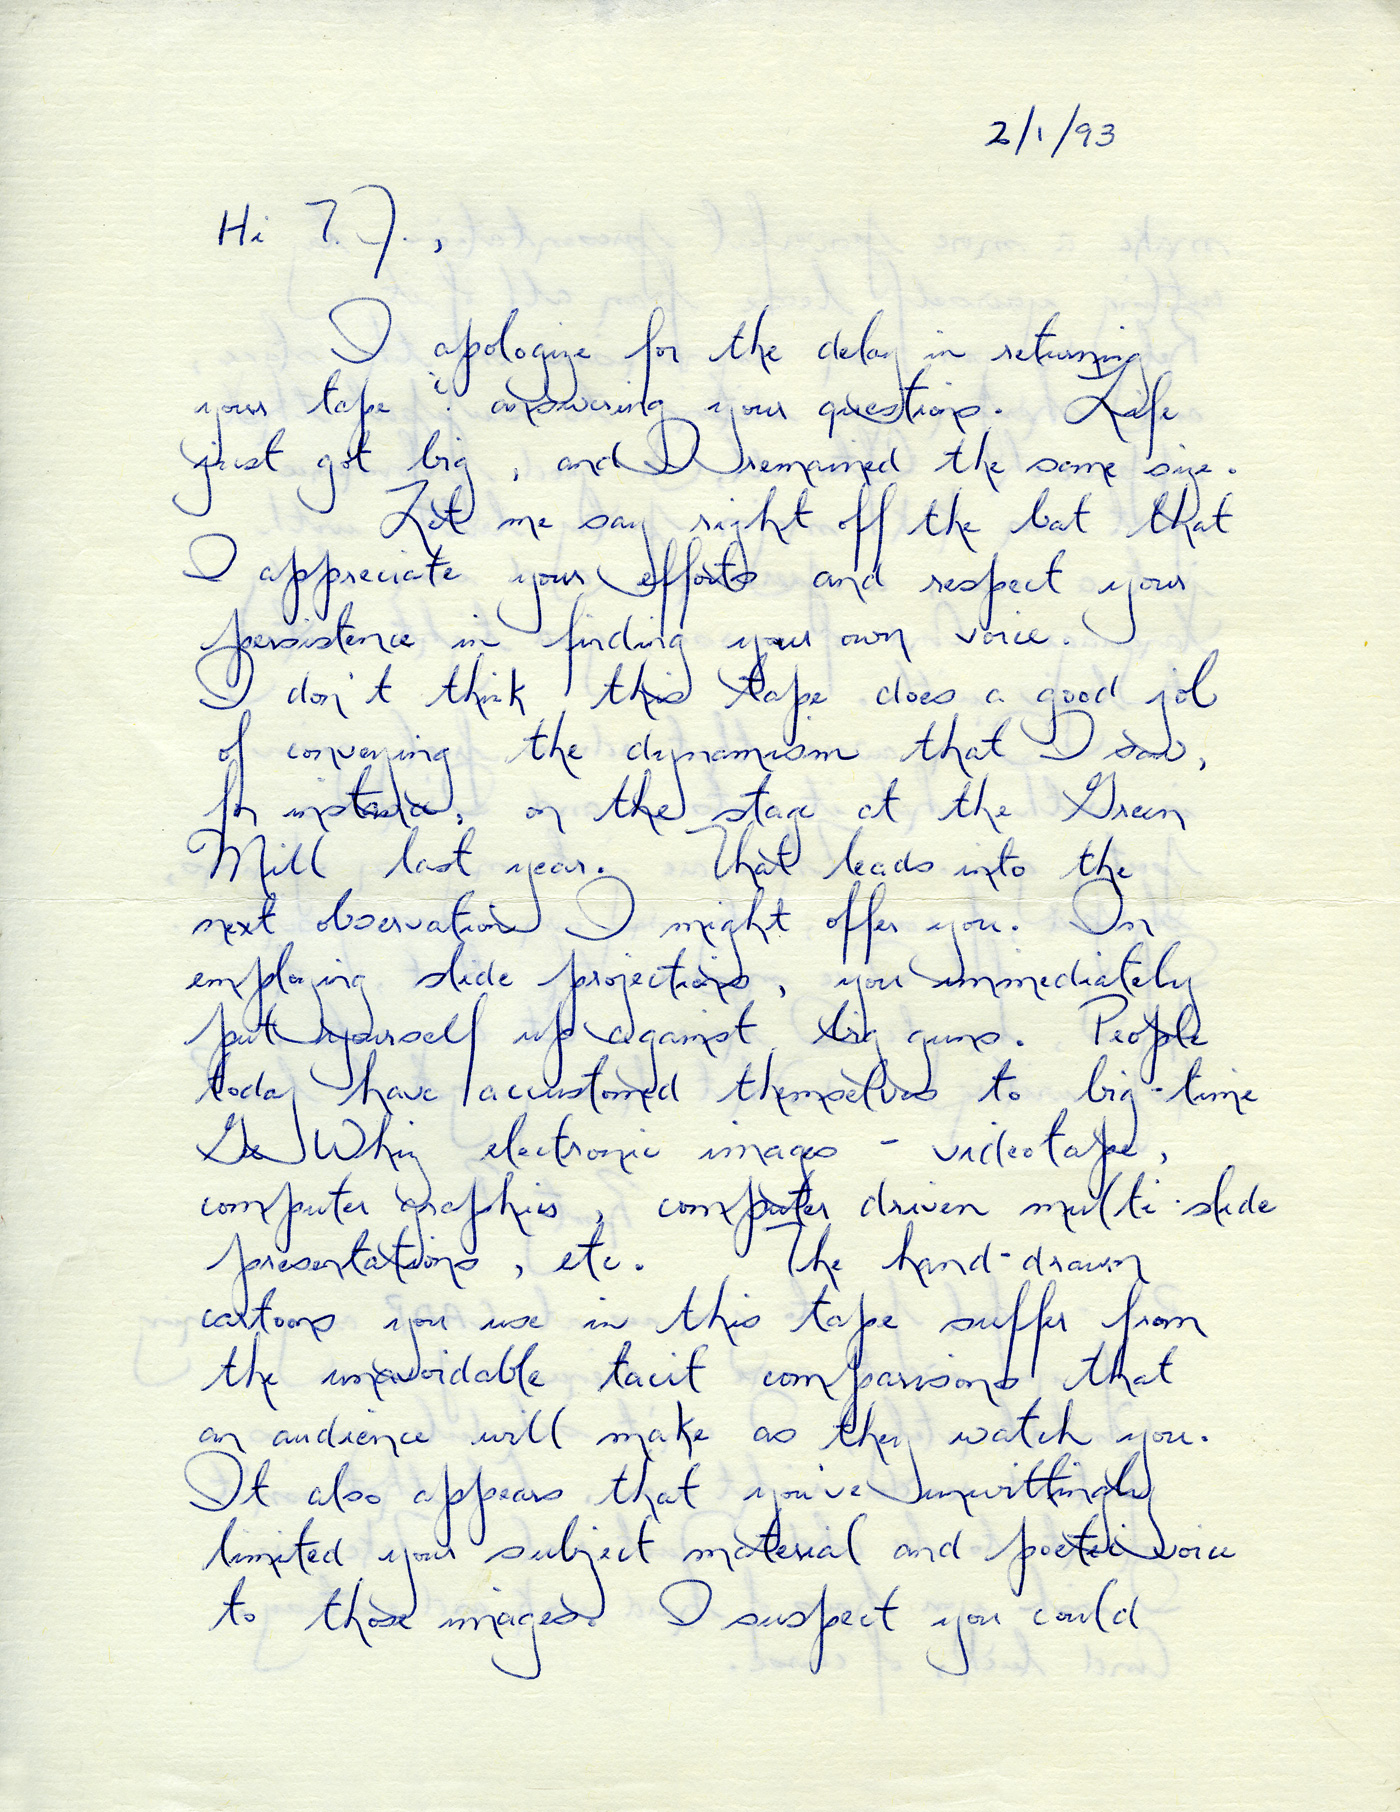 2/1/93
Hi T.J.,
I apologize for the delay in returning
your tape & answering your questions. Life
just got big, and I remained the same size.
Let me say right off the bat that
I appreciate your efforts and respect your
persistence in finding your own voice.
I don't think this tape does a good job
of conveying the dynamism that I saw,
for instance, on the stage at the Green
Mill last year. That leads into the
next observation I might offer you. In
employing slide projections, you immediately
put yourself up against big guns. People
today have accustomed themselves to big-time
Ge Whiz electronic images - videotape,
computer graphics, computer driven multi-slide
presentations, etc. The hand-drawn
cartoons you use in this tape suffer from
the unavoidable tacit comparisons that
an audience will make as they watch you.
It also appears that you've unwittingly
limited your subject material and poetic voice
to those images. I suspect you could